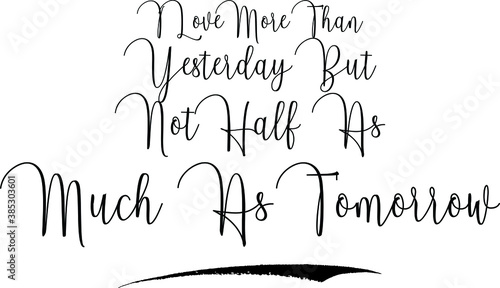 I Love More Than
Yesterday But
Not Half As
Much As Tomorrow
Adobe Stock | #385303601